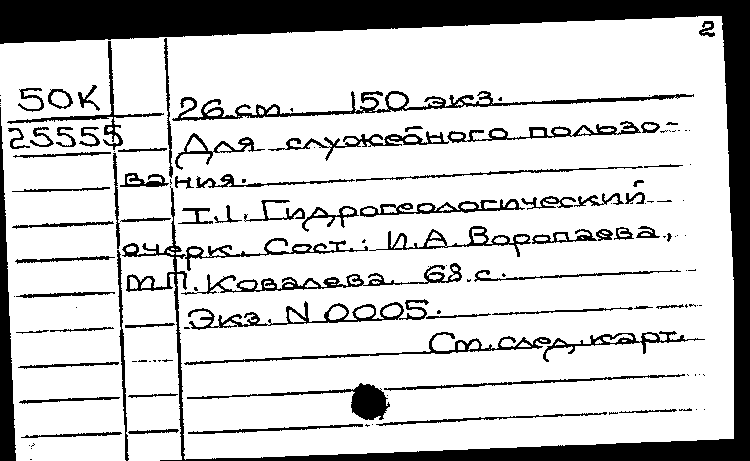 2
50К 26 см. 150 экз.
25555 Для служебного пользо-
вания.
Т.1. Гидрогеологический
очерк. Сост.: И.А. Воропаева,
М.П. Ковалева. 68 с.
Экз. N 0005.
См. след. карт.